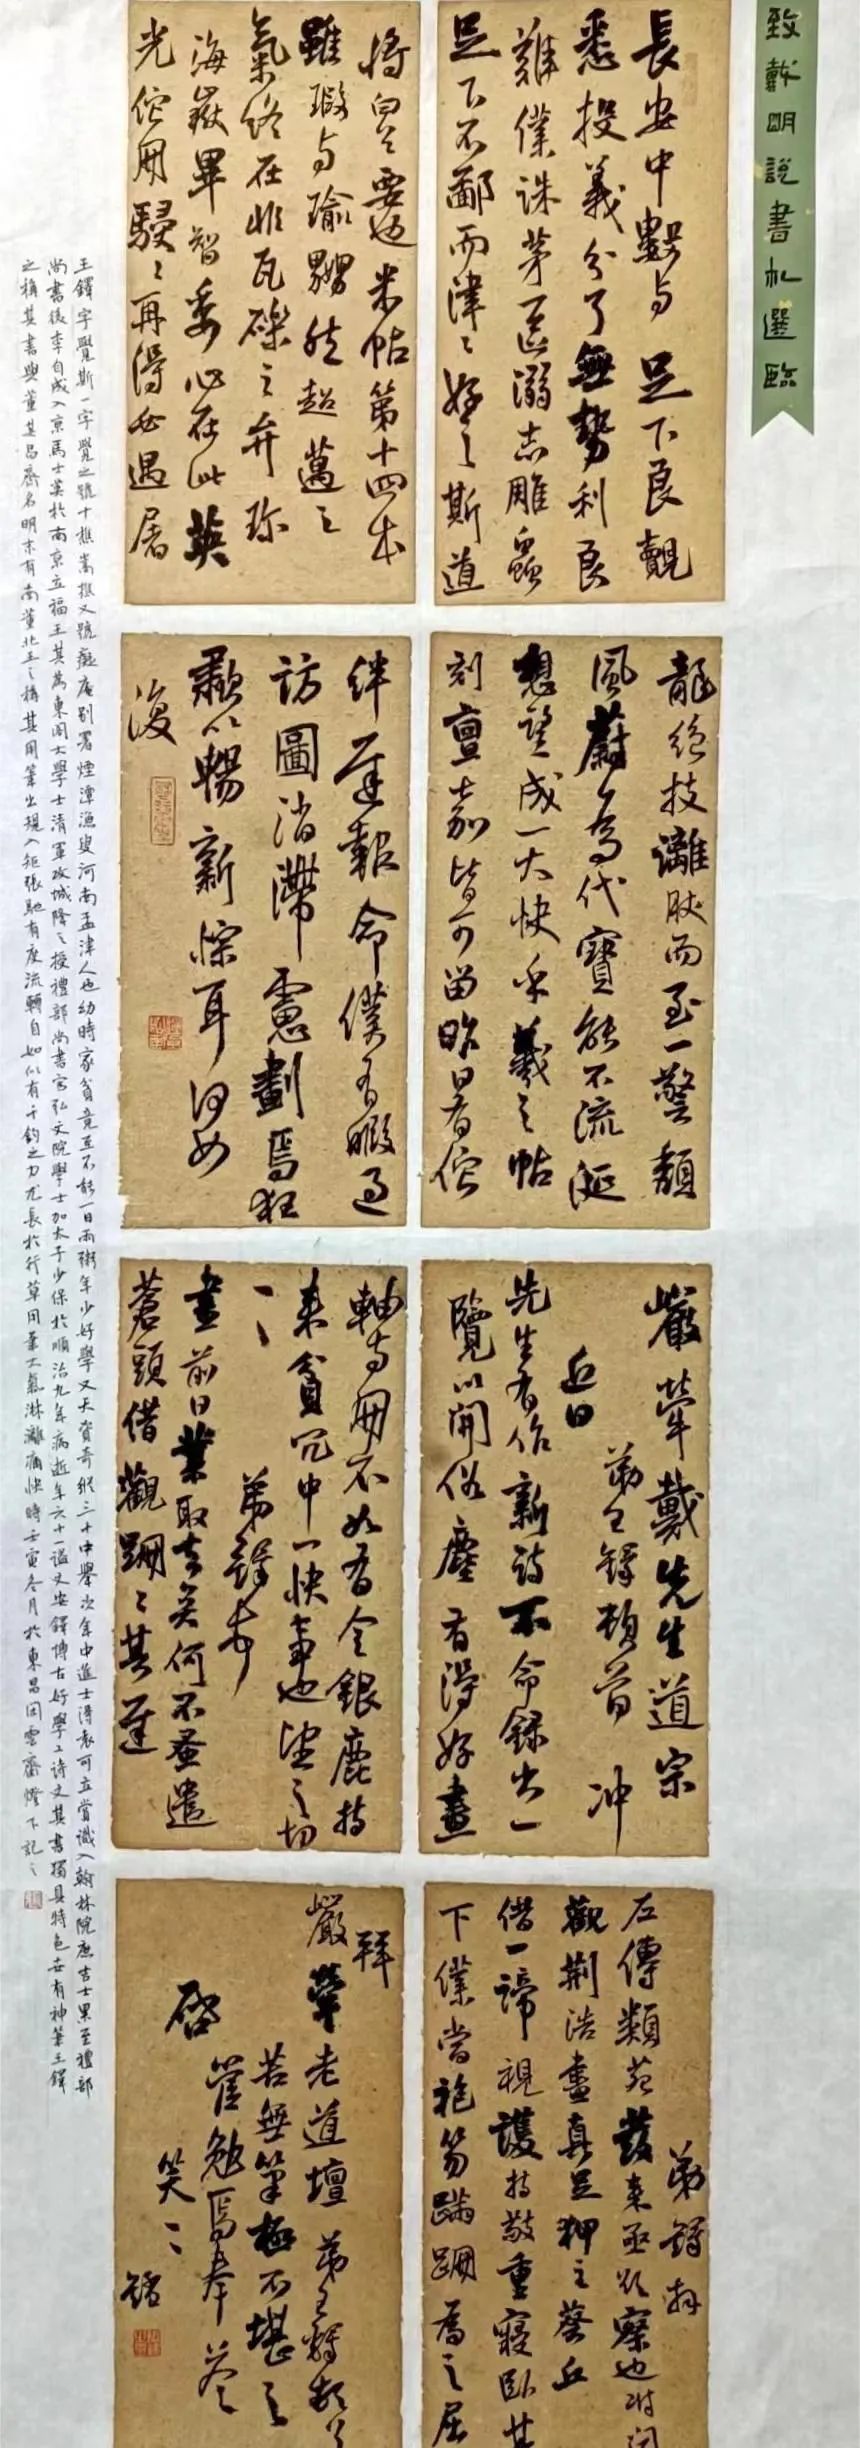 致戴明說書札選臨
長安中數与足下良覿
悉投義分了無勢利良
難僕誅茅一區溺志雕蟲
足下不鄙而津〻好之斯道
將
米帖第十四本
雖瑕与瑜
然超邁之
氣終在非瓦礫之弁珍
海嶽畢智委心在此英
光佗用駸〻再得如遇屠
龍絕技離肬而至一警頹
風蔚為代寶能不流涎
想望成一大快乎羲之帖
刻亶嘉皆可留昨日看佗
絆遲報命僕有暇過
訪圖消滯慮劃焉狂
歌以暢新悰耳何如
復
嚴犖戴先生道宗
弟王鐸頓首 冲
近日
先生有作新詩不命錄出一
覽以開俗塵看得好畫
軸与用不如看金銀鹿持
來貧冗中一快事也望之切
〻
弟鐸頓
畫前日業取去矣何不蚤遣
蒼頭借觀跚〻其遲
弟鐸拜
左傳類苑發來亟欲察也時閱
觀荊浩畫真足狎主葵丘
借一諦視護持敬重寢臥其
下僕當袍笏蹣跚為之屈
拜
嚴犖老道壇 弟王鐸頓首
苦無筆極不堪之
管勉焉奉答
啓
笑〻 鐸
王鐸字覺斯一字覺之號十樵嵩樵又號癡庵別署煙潭漁叟河南孟津人也幼時家貧竟至不能一日兩粥年少好學又天資奇縱三十中舉次年中進士得袁可立賞識入翰林院庶吉士累至禮部
尚書後李自成入京馬士英於南京立福王其為東閣大學士清軍攻城降之授禮部尚書官弘文院學士加太子少保於順治九年病逝年六十一謚文安鐸博古好學工詩文其書獨具特色世有神筆王鐸
之稱其書與董其昌齊名明末有南董北王之稱其用筆出規入矩張馳有度流轉自如似有千鈞之力尤長於行草用筆大氣淋漓痛快時壬寅冬月於東昌閑雲齋燈下記之